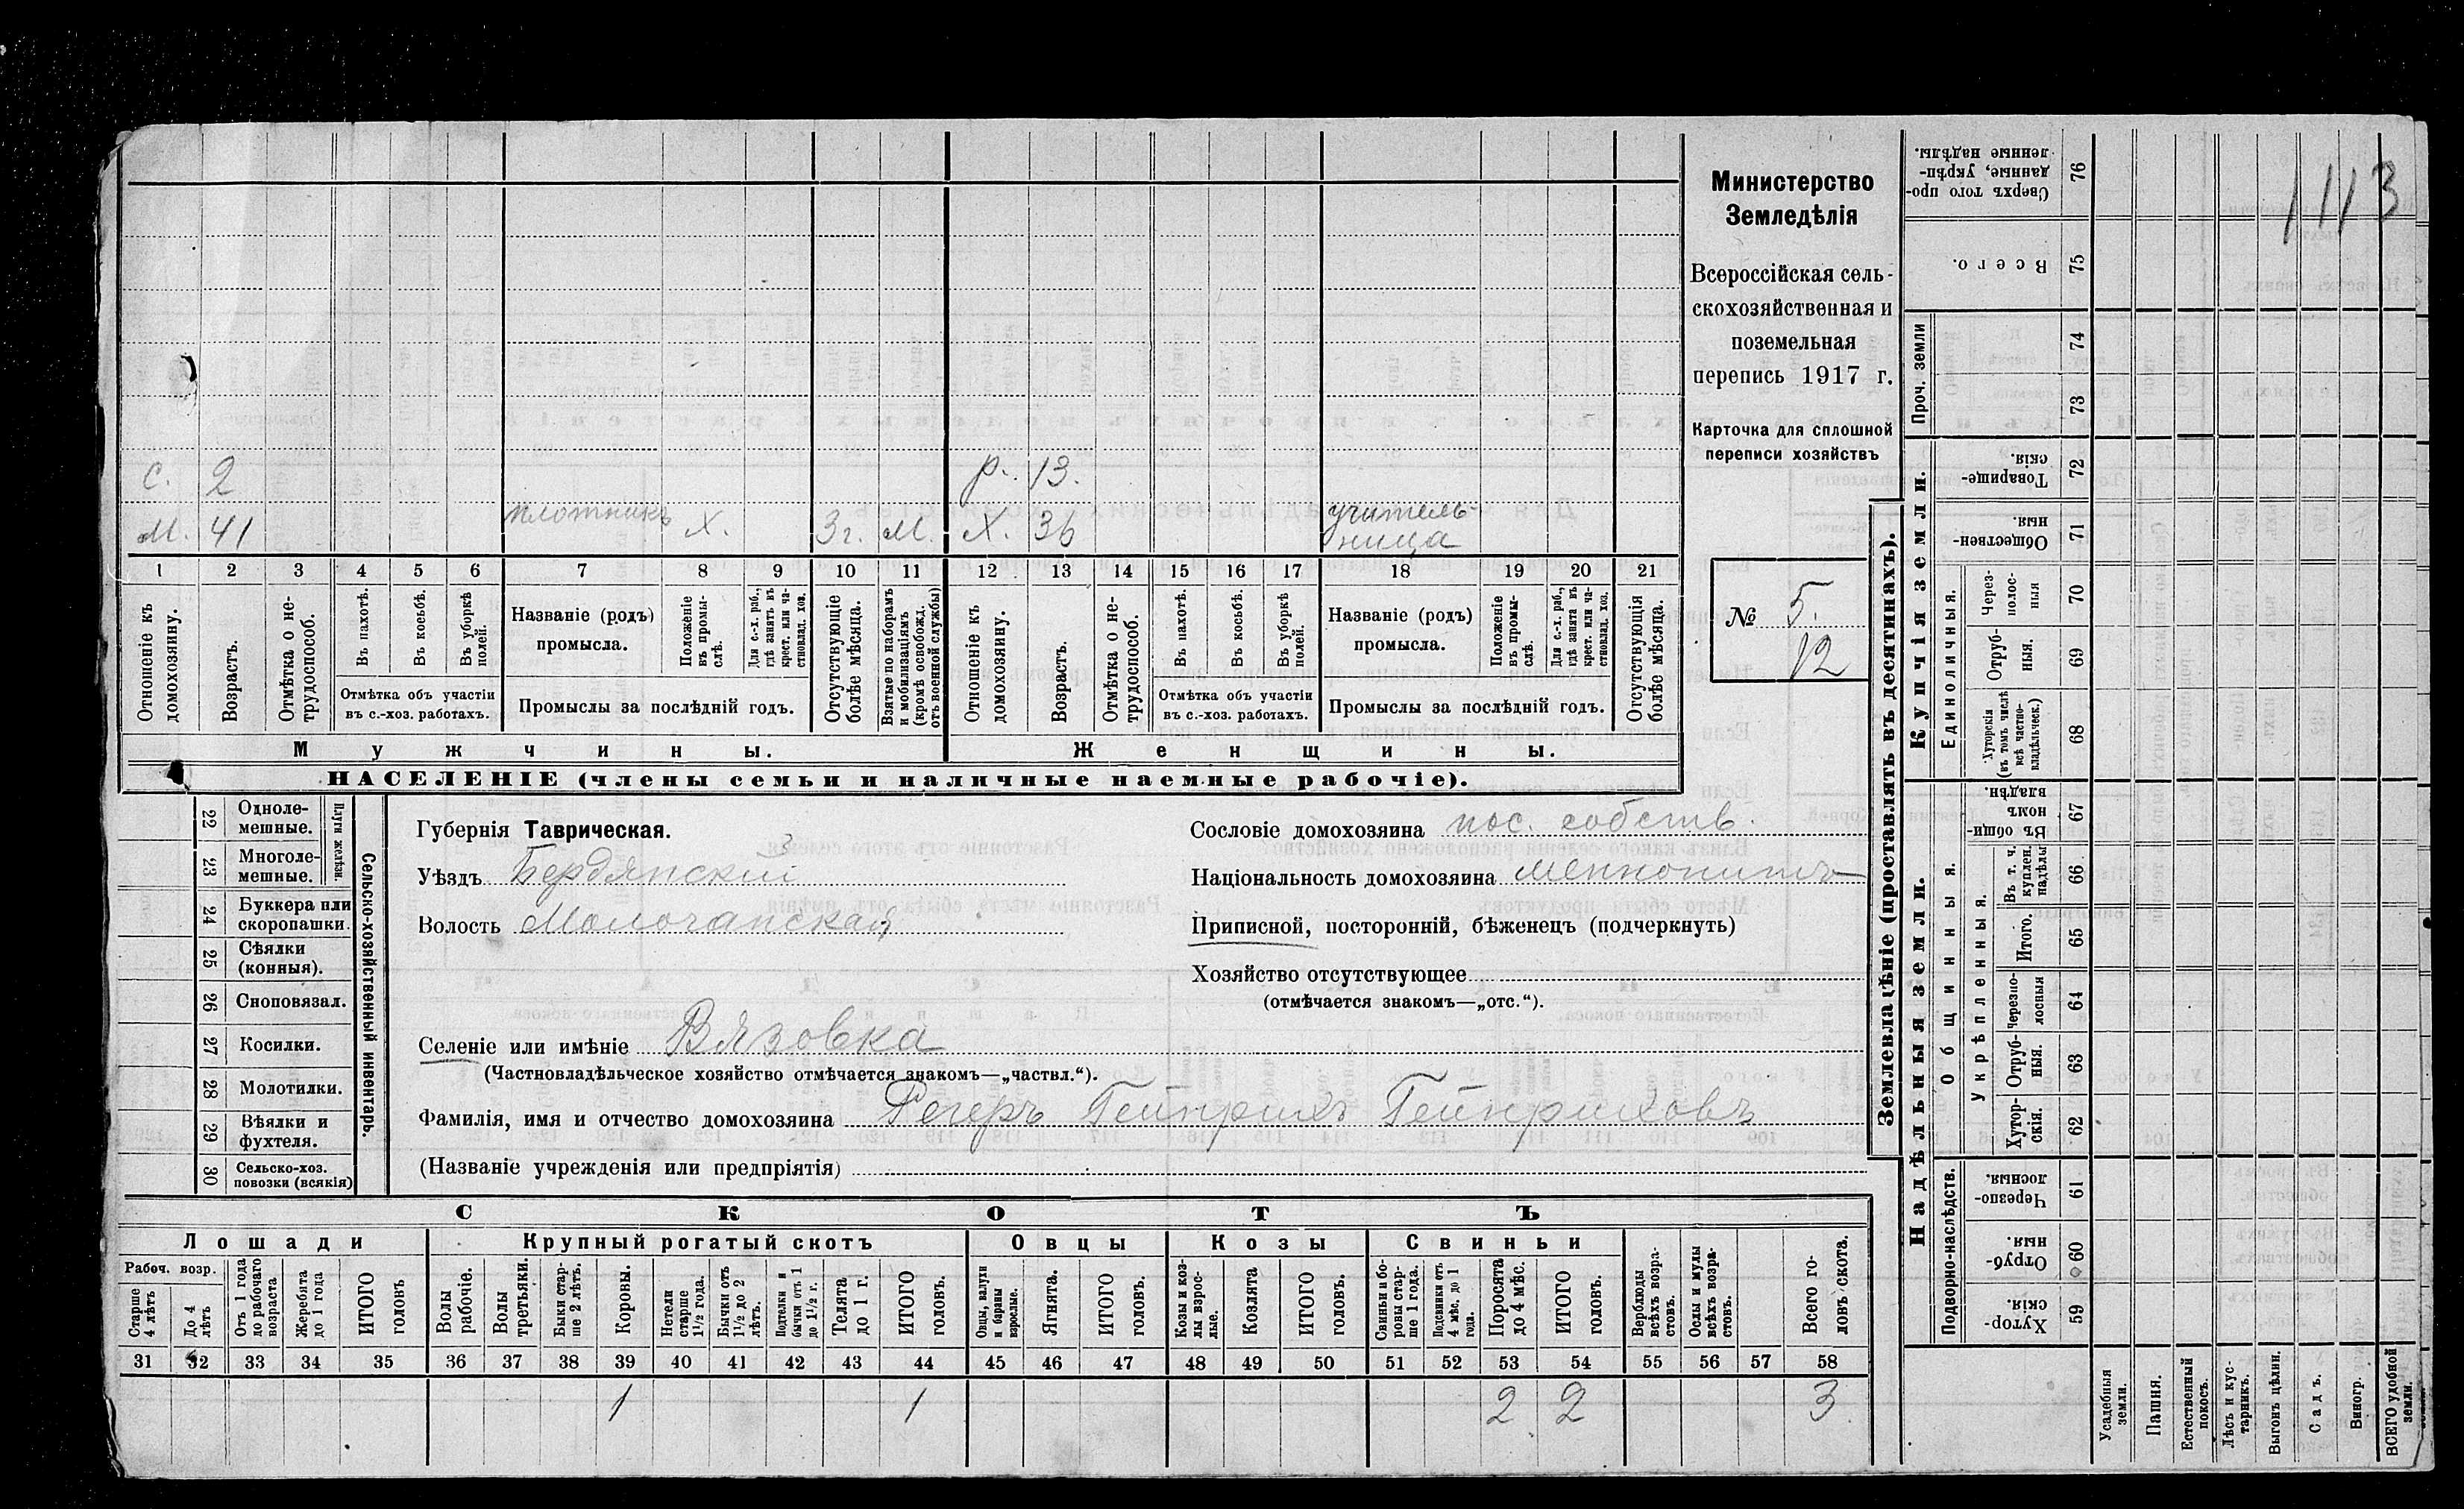 1113
Министерство
Земледѣлія
Всероссійская сель-
скохозяйственная и
поземельная
перепись 1917 г.
Карточка для сплошной
переписи хозяйствъ
№ 5.
12
с. 2 р. 13.
м. 41 плотникъ х. 3г. м. х. 36 учитель-
ница
1 2 3 4 5 6 7 8 9 10 11 12 13 14 15 16 17 18 19 20 21
Отношеніе къ домохозяину.
Возрастъ.
Отмѣтка о не-
трудоспособ.
Въ пахотѣ.
Въ косьбѣ.
Въ уборкѣ полей.
Отмѣтка объ участіи
въ с.-хоз. работахъ.
Названіе (родъ)
промысла.
Положеніе въ промы-
слѣ.
Для с.-х. раб., гдѣ занятъ въ крест. или ча-
стновлад. хоз.
Промыслы за послѣдній годъ.
Отсутствующіе болѣе мѣсяца.
Взятые по наборамъ и мобилизаціямъ (кромѣ освобожд. отъ военной службы)
Отношеніе къ домохозяину.
Возрастъ.
Отмѣтка о не-
трудоспособ.
Въ пахотѣ.
Въ косьбѣ.
Въ уборкѣ полей.
Отмѣтка объ участіи
въ с.-хоз. работахъ.
Названіе (родъ)
промысла.
Положеніе въ промы-
слѣ.
Для с.-х. раб., гдѣ занята въ крест. или ча-
стновлад. хоз.
Промыслы за послѣдній годъ.
Отсутствующія болѣе мѣсяца.
Мужчины.
Женщины.
НАСЕЛЕНІЕ (члены семьи и наличные наемные рабочіе).
Сельско-хозяйственный инвентарь.
Плуги желѣзн.
22 Одноле-
мешные.
23 Многоле-
мешные.
24 Буккера или
скоропашки.
25 Сѣялки
(конныя).
26 Сноповязал.
27 Косилки.
28 Молотилки.
29 Вѣялки и
фухтеля.
30 Сельско-хоз.
повозки (всякія)
Губернія Таврическая.
Уѣздъ Бердянскій
Волость Молочанская
Сословіе домохозяина пос. собств.
Національность домохозяина меннонитъ
Приписной, посторонній, бѣженецъ (подчеркнуть)
Хозяйство отсутствующее
(отмѣчается знакомъ—„отс.“).
Селеніе или имѣніе Вязовка
(Частновладѣльческое хозяйство отмѣчается знакомъ—„частвл.“).
Фамилія, имя и отчество домохозяина Регеръ Гейнрихъ Гейнриховъ
(Названіе учрежденія или предпріятія)
СКОТЪ
Лошади
Крупный рогатый скотъ
Овцы
Козы
Свиньи
Рабоч. возр.
Старше 4 лѣтъ
До 4 лѣтъ
Отъ 1 года до рабочаго возраста
Жеребята до 1 года
ИТОГО головъ
Волы рабочіе.
Волы третьяки.
Быки стар-
ше 2 лѣтъ.
Коровы.
Нетели старше 1½ года.
Бычки отъ 1½ до 2 лѣтъ.
Подтелки и бычки отъ 1 до 1½ г.
Телята до 1 г.
ИТОГО головъ.
Овцы, валухи и бараны взрослые.
Ягнята.
ИТОГО головъ.
Козы и коз-
лы взрос-
лые.
Козлята
ИТОГО головъ.
Свиньи и бо-
ровы стар-
ше 1 года.
Подсвинки отъ 4 мѣс. до 1 года.
Поросята до 4 мѣс.
ИТОГО головъ.
Верблюды всѣхъ возра-
стовъ.
Ослы и мулы всѣхъ возра-
стовъ.
Всего го-
ловъ скота.
31 32 33 34 35 36 37 38 39 40 41 42 43 44 45 46 47 48 49 50 51 52 53 54 55 56 57 58
1 1 2 2 3
Землевладѣніе (проставлять въ десятинахъ).
Надѣльныя земли.
Купчія земли.
Проч. земли
Подворно-наслѣдств.
Общинныя.
Укрѣпленныя.
Единоличныя.
59 Хутор-
скія.
60 Отруб-
ныя.
61 Черезпо-
лосныя.
62 Хутор-
скія.
63 Отруб-
ныя.
64 Черезпо-
лосныя
65 Итого.
66 Въ т. ч. куплен. надѣлы
67 Въ общин-
номъ владѣн.
68 Хуторскія (въ томъ числѣ всѣ частно-
владѣльческ.)
69 Отруб-
ныя.
70 Через-
полос-
ныя
71 Обществен-
ныя.
72 Товарище-
скія.
73
74
75 Всего.
76 Сверхъ того про-
данные, укрѣп-
ленные надѣлы.
Усадебныя земли.
Пашня.
Естественный покосъ.
Лѣсъ и кус-
тарникъ.
Выгонъ цѣлин.
Садъ.
Виногр.
ВСЕГО удобной земли.